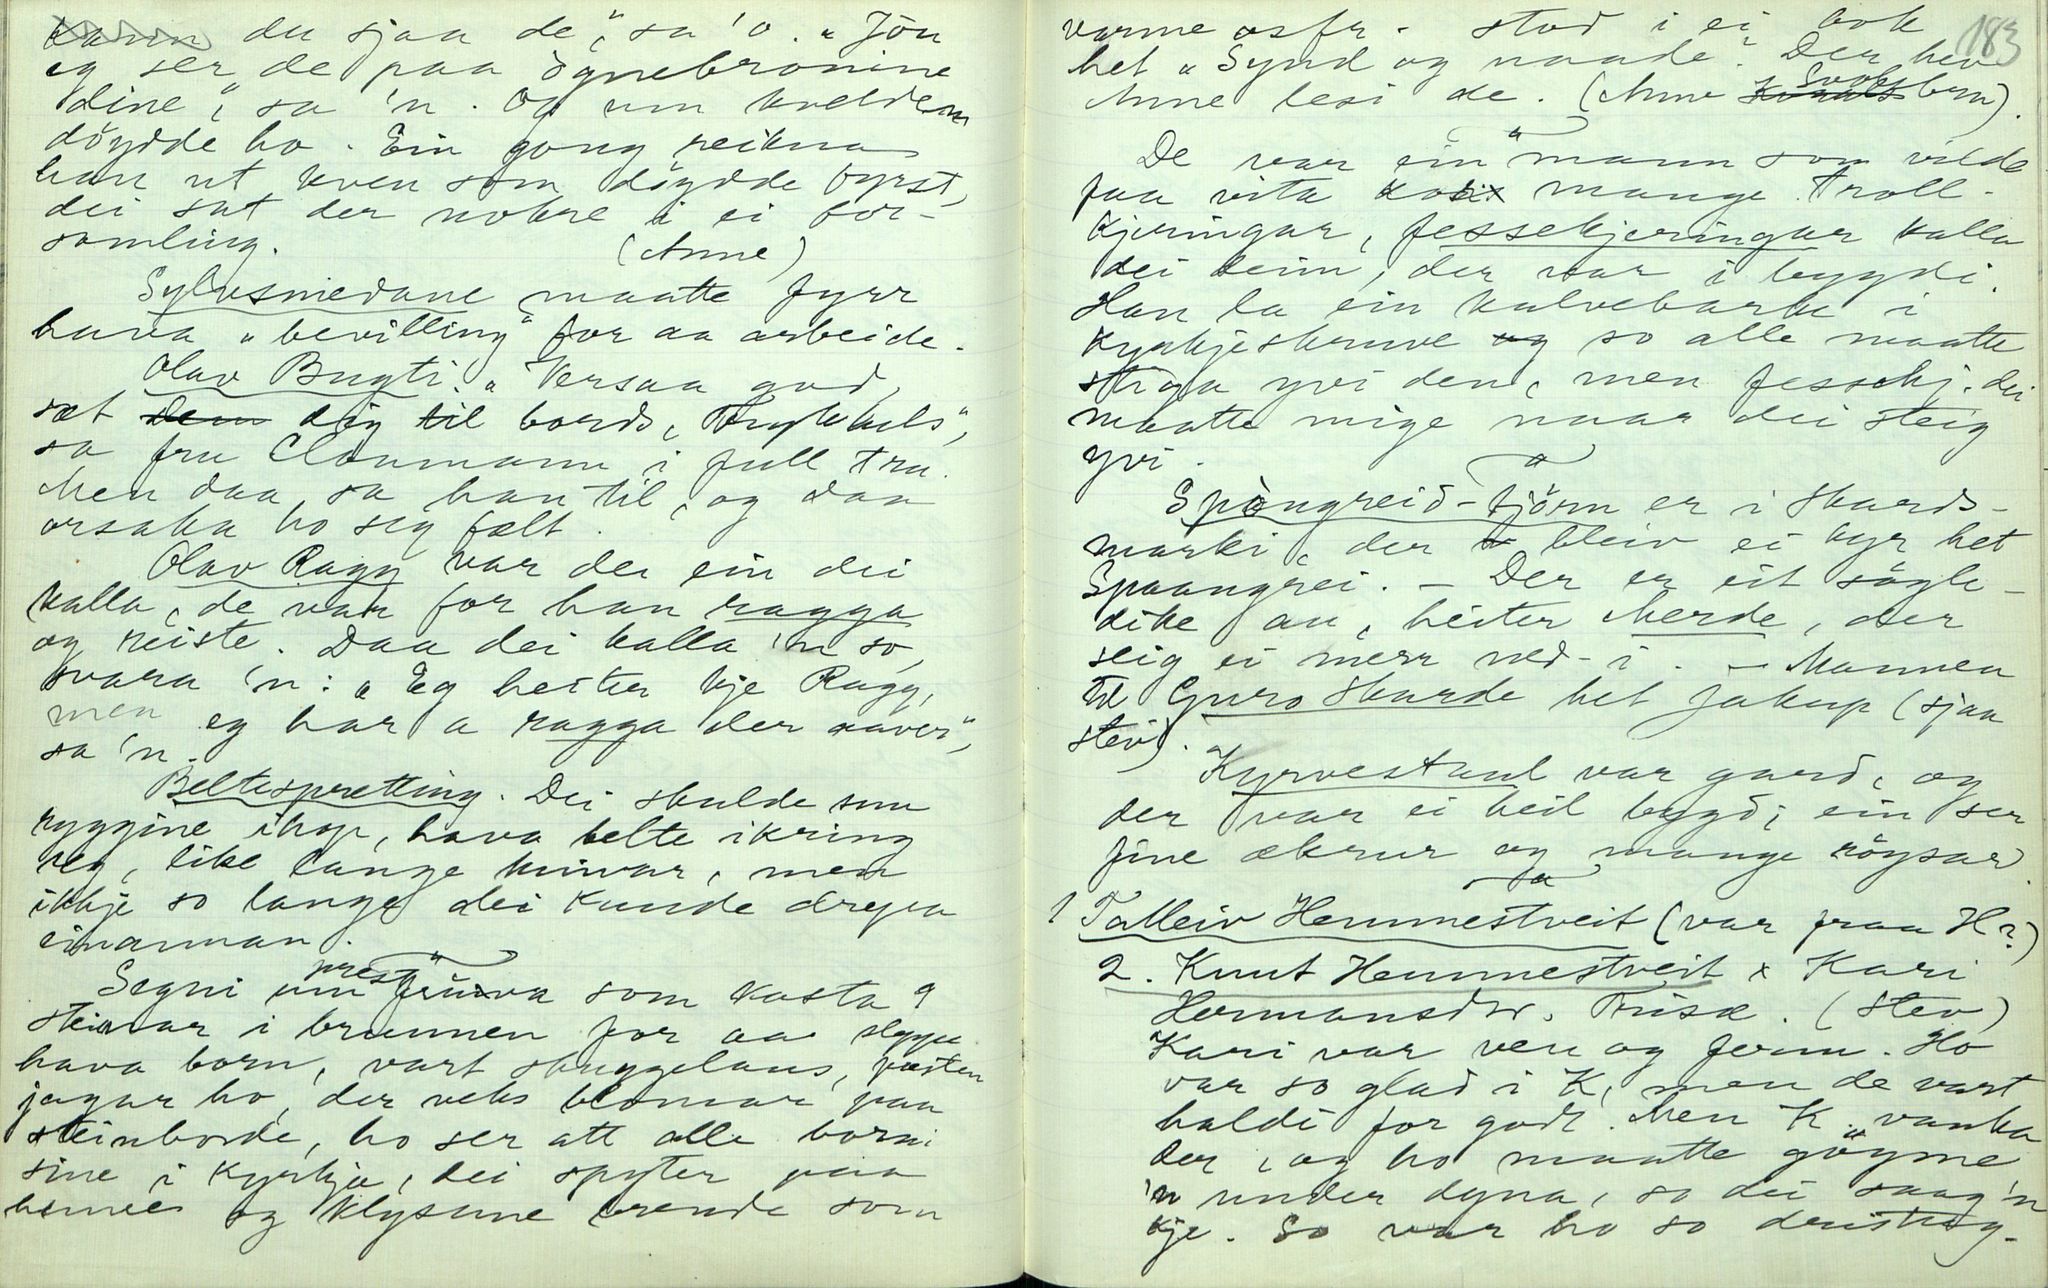 kann du sjaa de", sa 'o. "Jon
eg ser de paa ögnebronine
dine", sa 'n. Og um kvelden
döydde ho. Ein gong reikna
han ut kven som döydde fyrst,
dei sat der nokre i ei for-
samling. (Anne)
Sylvsmedane maatte fyrr
hava "bevilling" for aa arbeide.
Olav Bugti. "Versaa god,
sæt dem dig til bords,
sa fru Cloumann i full tru.
Men daa sa han til, og daa
orsaka ho seg fælt.
Olav Ragg var der ein dei
kalla, de var for han ragga
og reiste. Daa dei kalla 'n so,
svara 'n: "Eg heiter kje Ragg,
men eg har a ragga der
sa 'n.
Beltespretting. Dei skulde snu
ryggine ihop, hava belte ikring
seg, like lange knivar, men
ikkje so lange dei kunde drepa
einannan.
Segni um prestefrūva som kasta 9
steinar i brunnen for aa sleppe
hava born, vart skuggelaus, presten
jagar ho, der veks blomar paa
steinborde, ho ser att alle borni
sine i kyrkja, dei spyter paa
henne og klysune brende som
183
varme osfr. stod i ei bok
het "Synd og naade". Der hev
Anne lesi de. (Anne bern).
De var ein mann som vilde
faa vita mange troll-
kjeringar, fessekjeringar kalla
dei deim, der var i bygdi.
Han la ein kalvebarke i
kyrkjeskruve og so alle maatte
stiga yvi den, men fessekj. dei
maatte mige naar dei steig
yvi.
Spöngreid-tjörn er i Skards-
marki, der bleiv ei kyr het
Spaangrei. - Der er eit sögle-
dike au, heiter Merde, der
seig ei merr ned-i. - Mannen
til Guro Skarde het Jakup (sjaa
stev).
Kyrvestaul var gard, og
der var ei heil bygd; ein ser
fine ækrur og mange röysar.
1 Talleiv Hemmestveit (var fraa H?)
2. Knut Hemmestveit x Kari
Hermansdtr. Trisæ. (Stev)
Kari var ven og fom. Ho
var so glad i K, men de vart
haldi for godt. Men K. vanka
der, og ho maatte göyme
'n under dyna, so dei saag 'n
kje. So var ho so dristug-